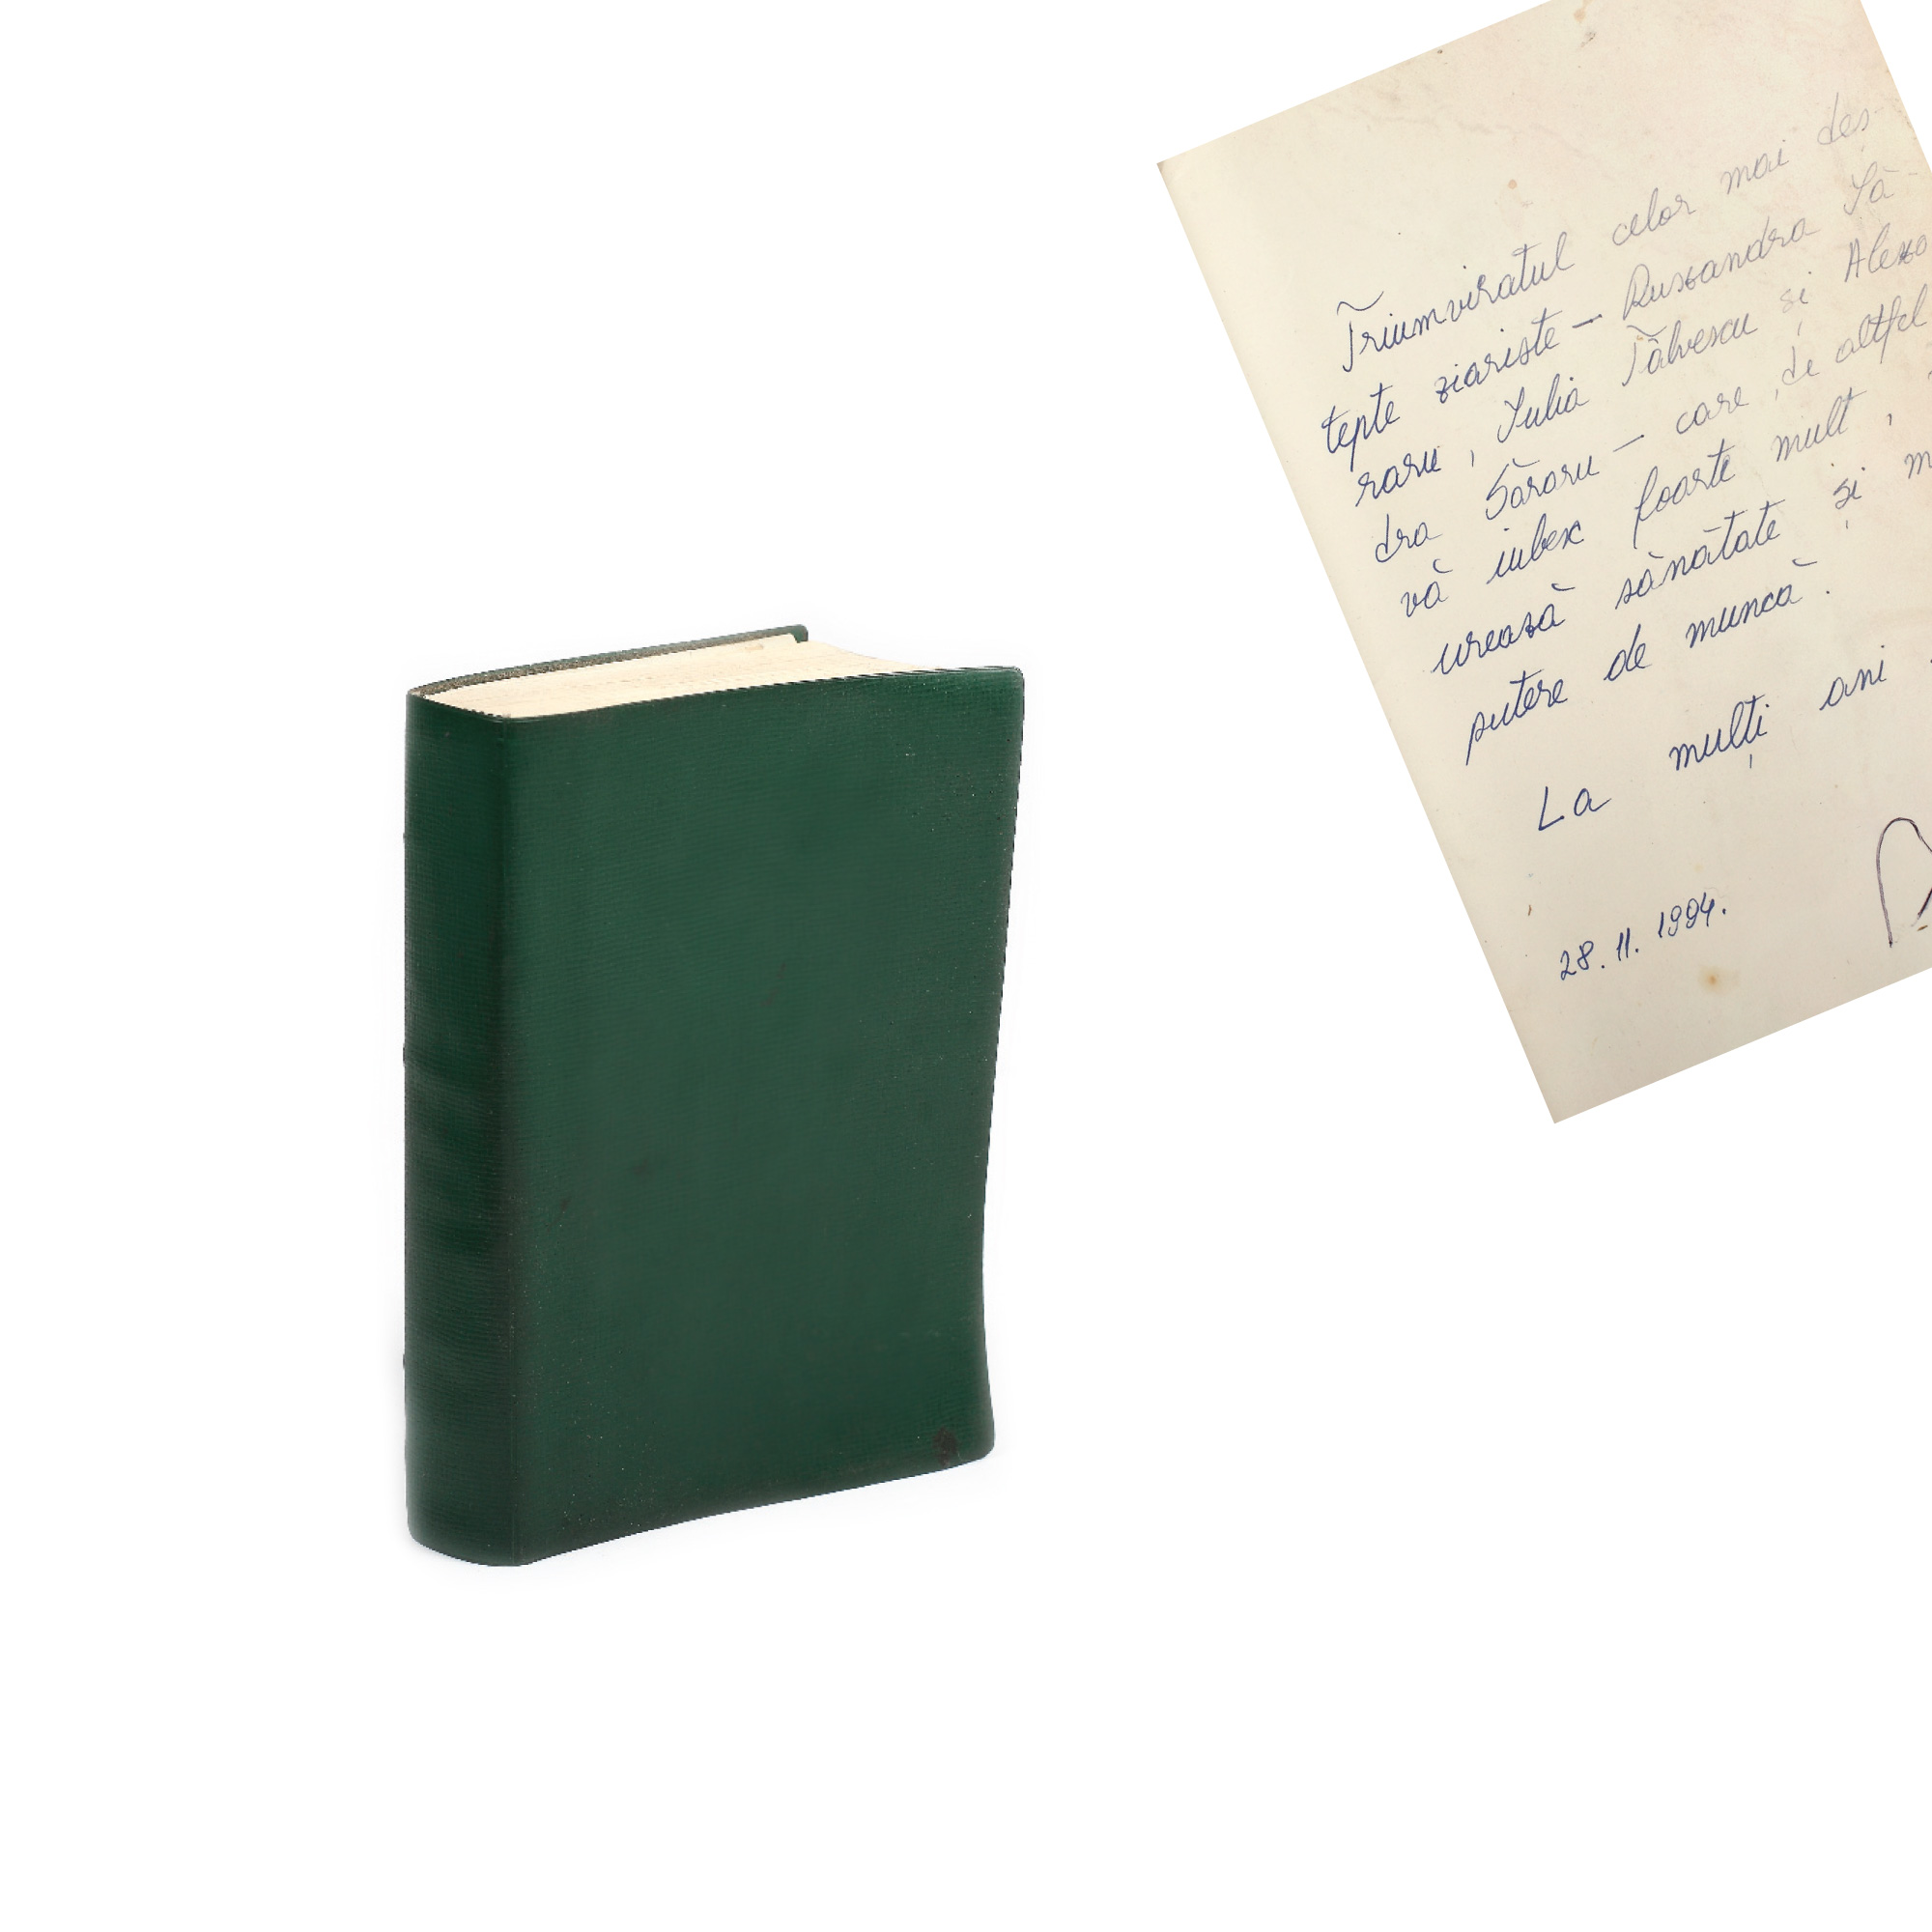 Triumviratul celor mai deș-
tepte ziariste — Ruxandra Să-
raru, Iulia Tâlvescu și Alexa
dra Săraru — care, de altfel
vă iubesc foarte mult,
urează sănătate și m
putere de muncă.
La mulți ani
28.11.1994.